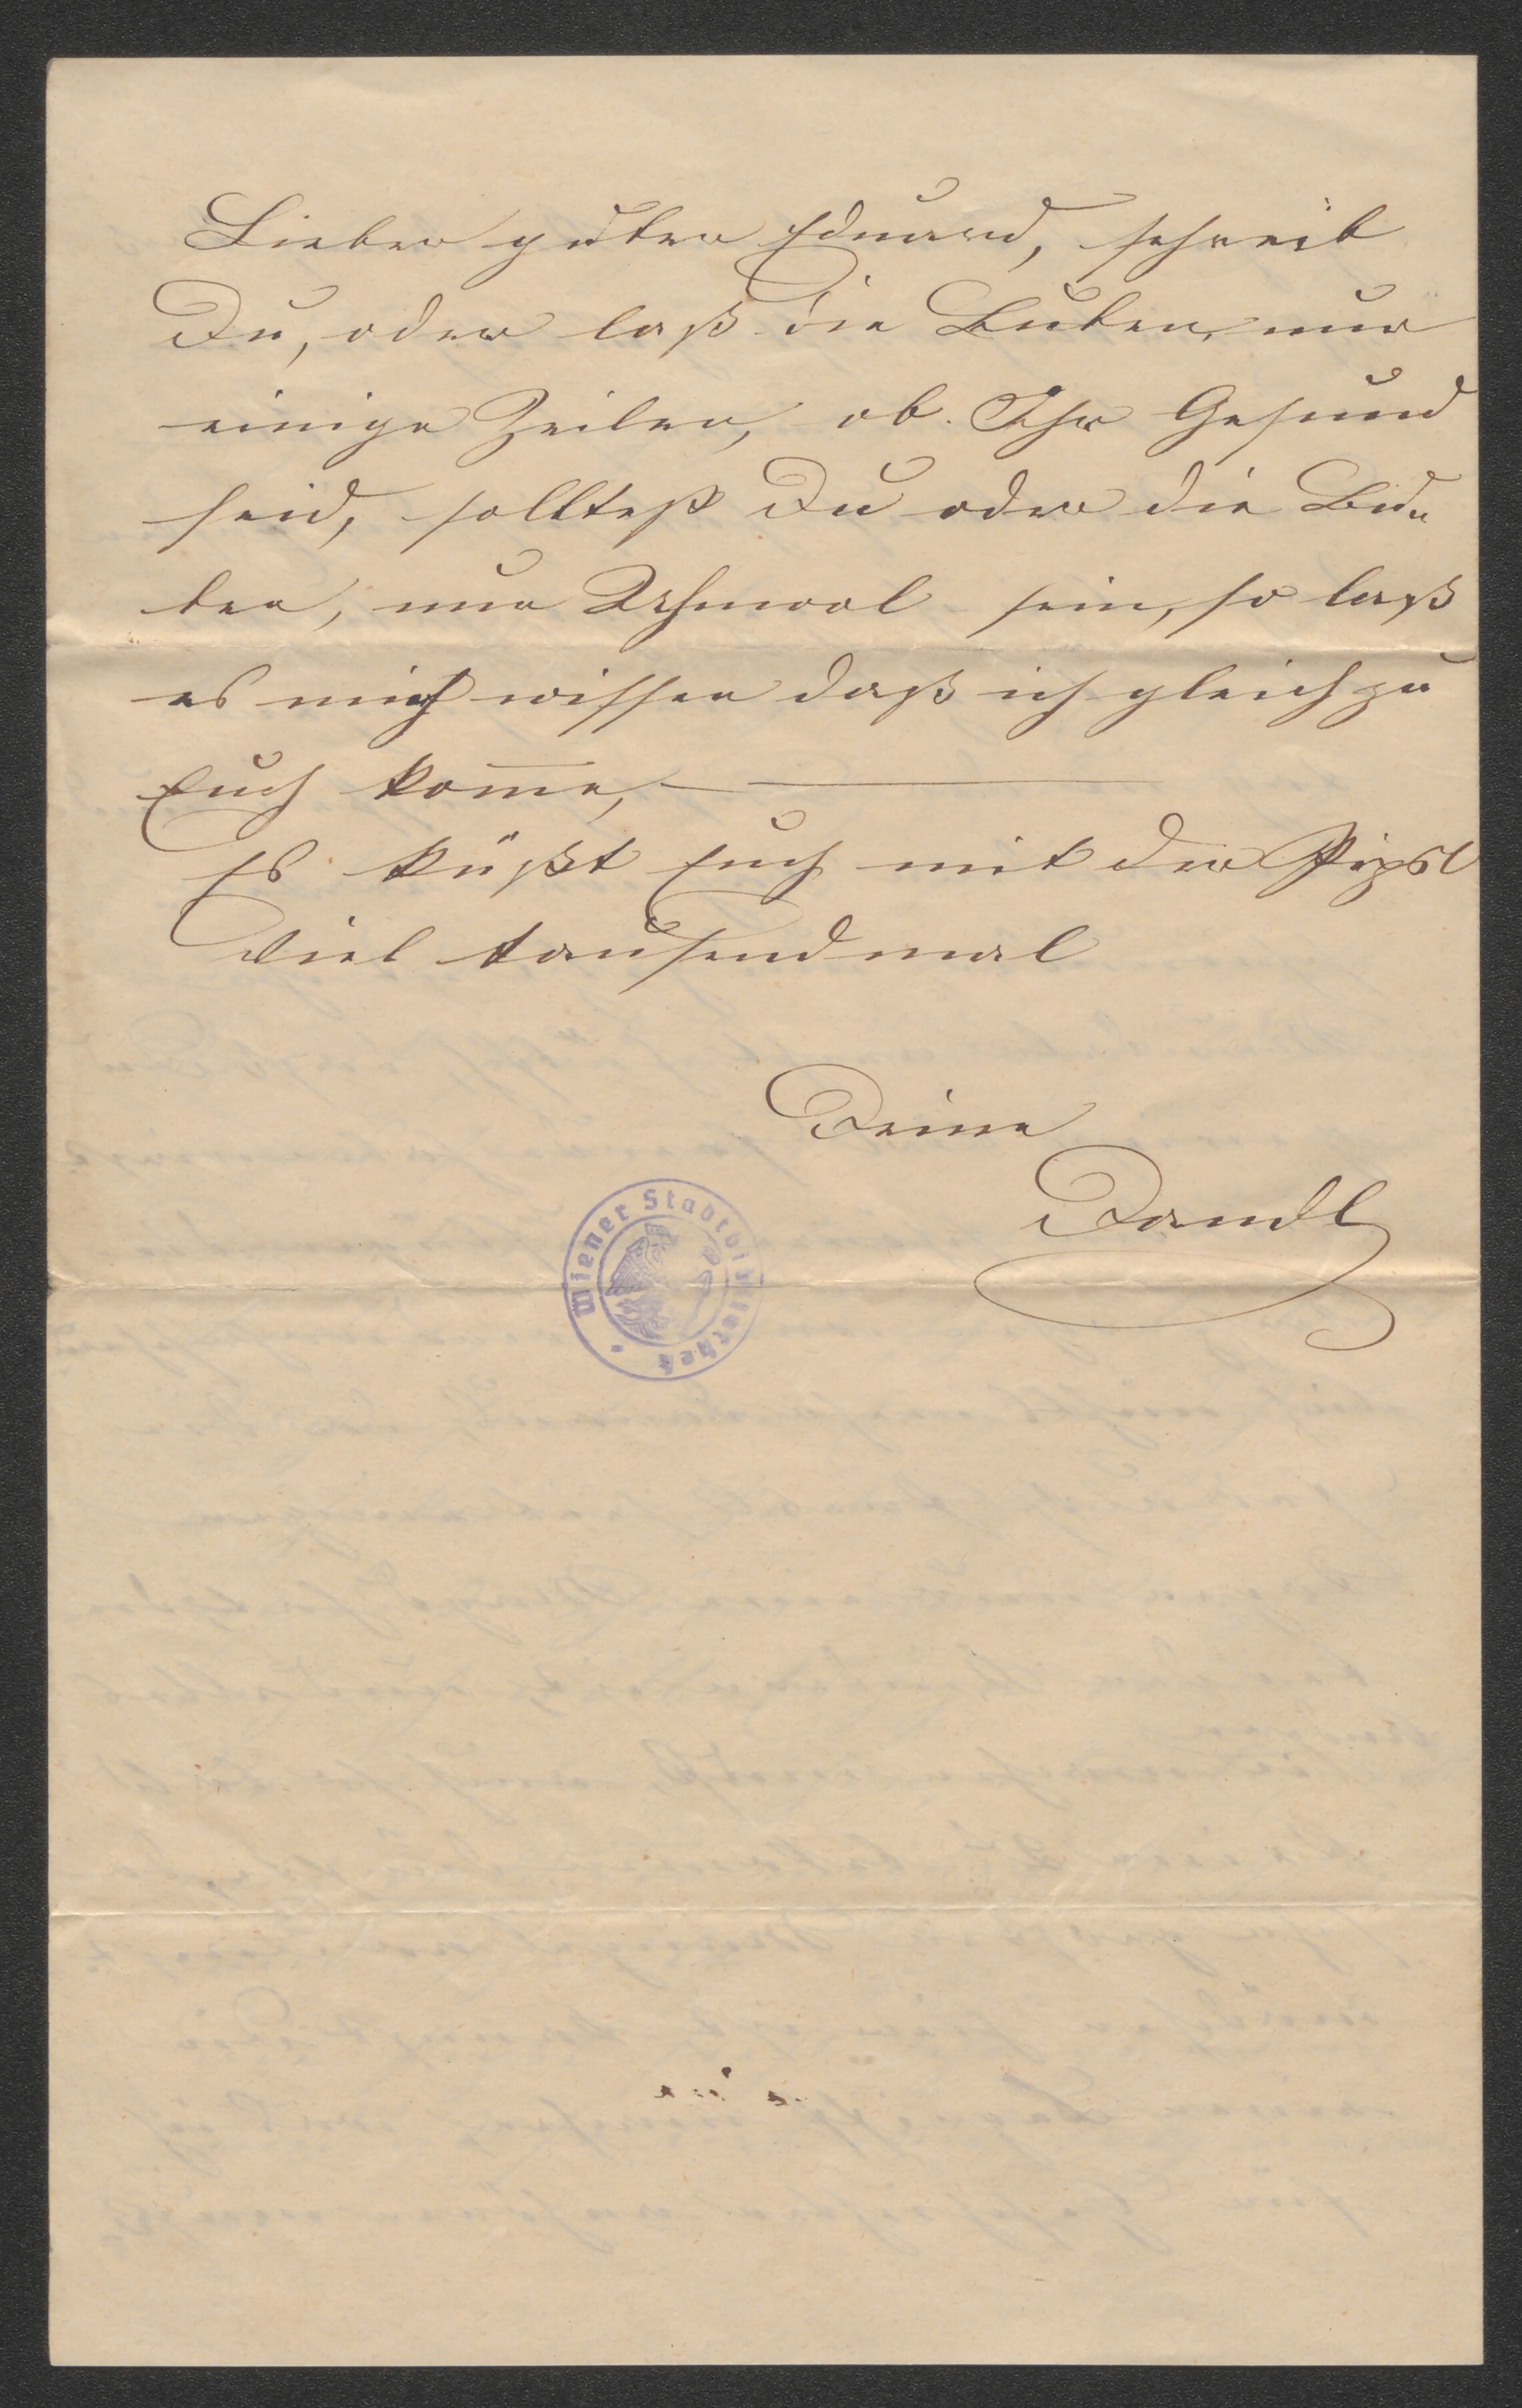 Lieber guter Eduard, schreib
Du, oder laß die Buben, nur
einige Zeilen, ob Ihr Gesund
seid, solltest Du oder die Bu„
ben, nur  sein, so laß
es mich wissen daß ich gleich zu
Euch kom̅e, —
Es küßt Euch mit der
Viel tausendmal
Deine
Dandl
Wiener Stadtbibliothek